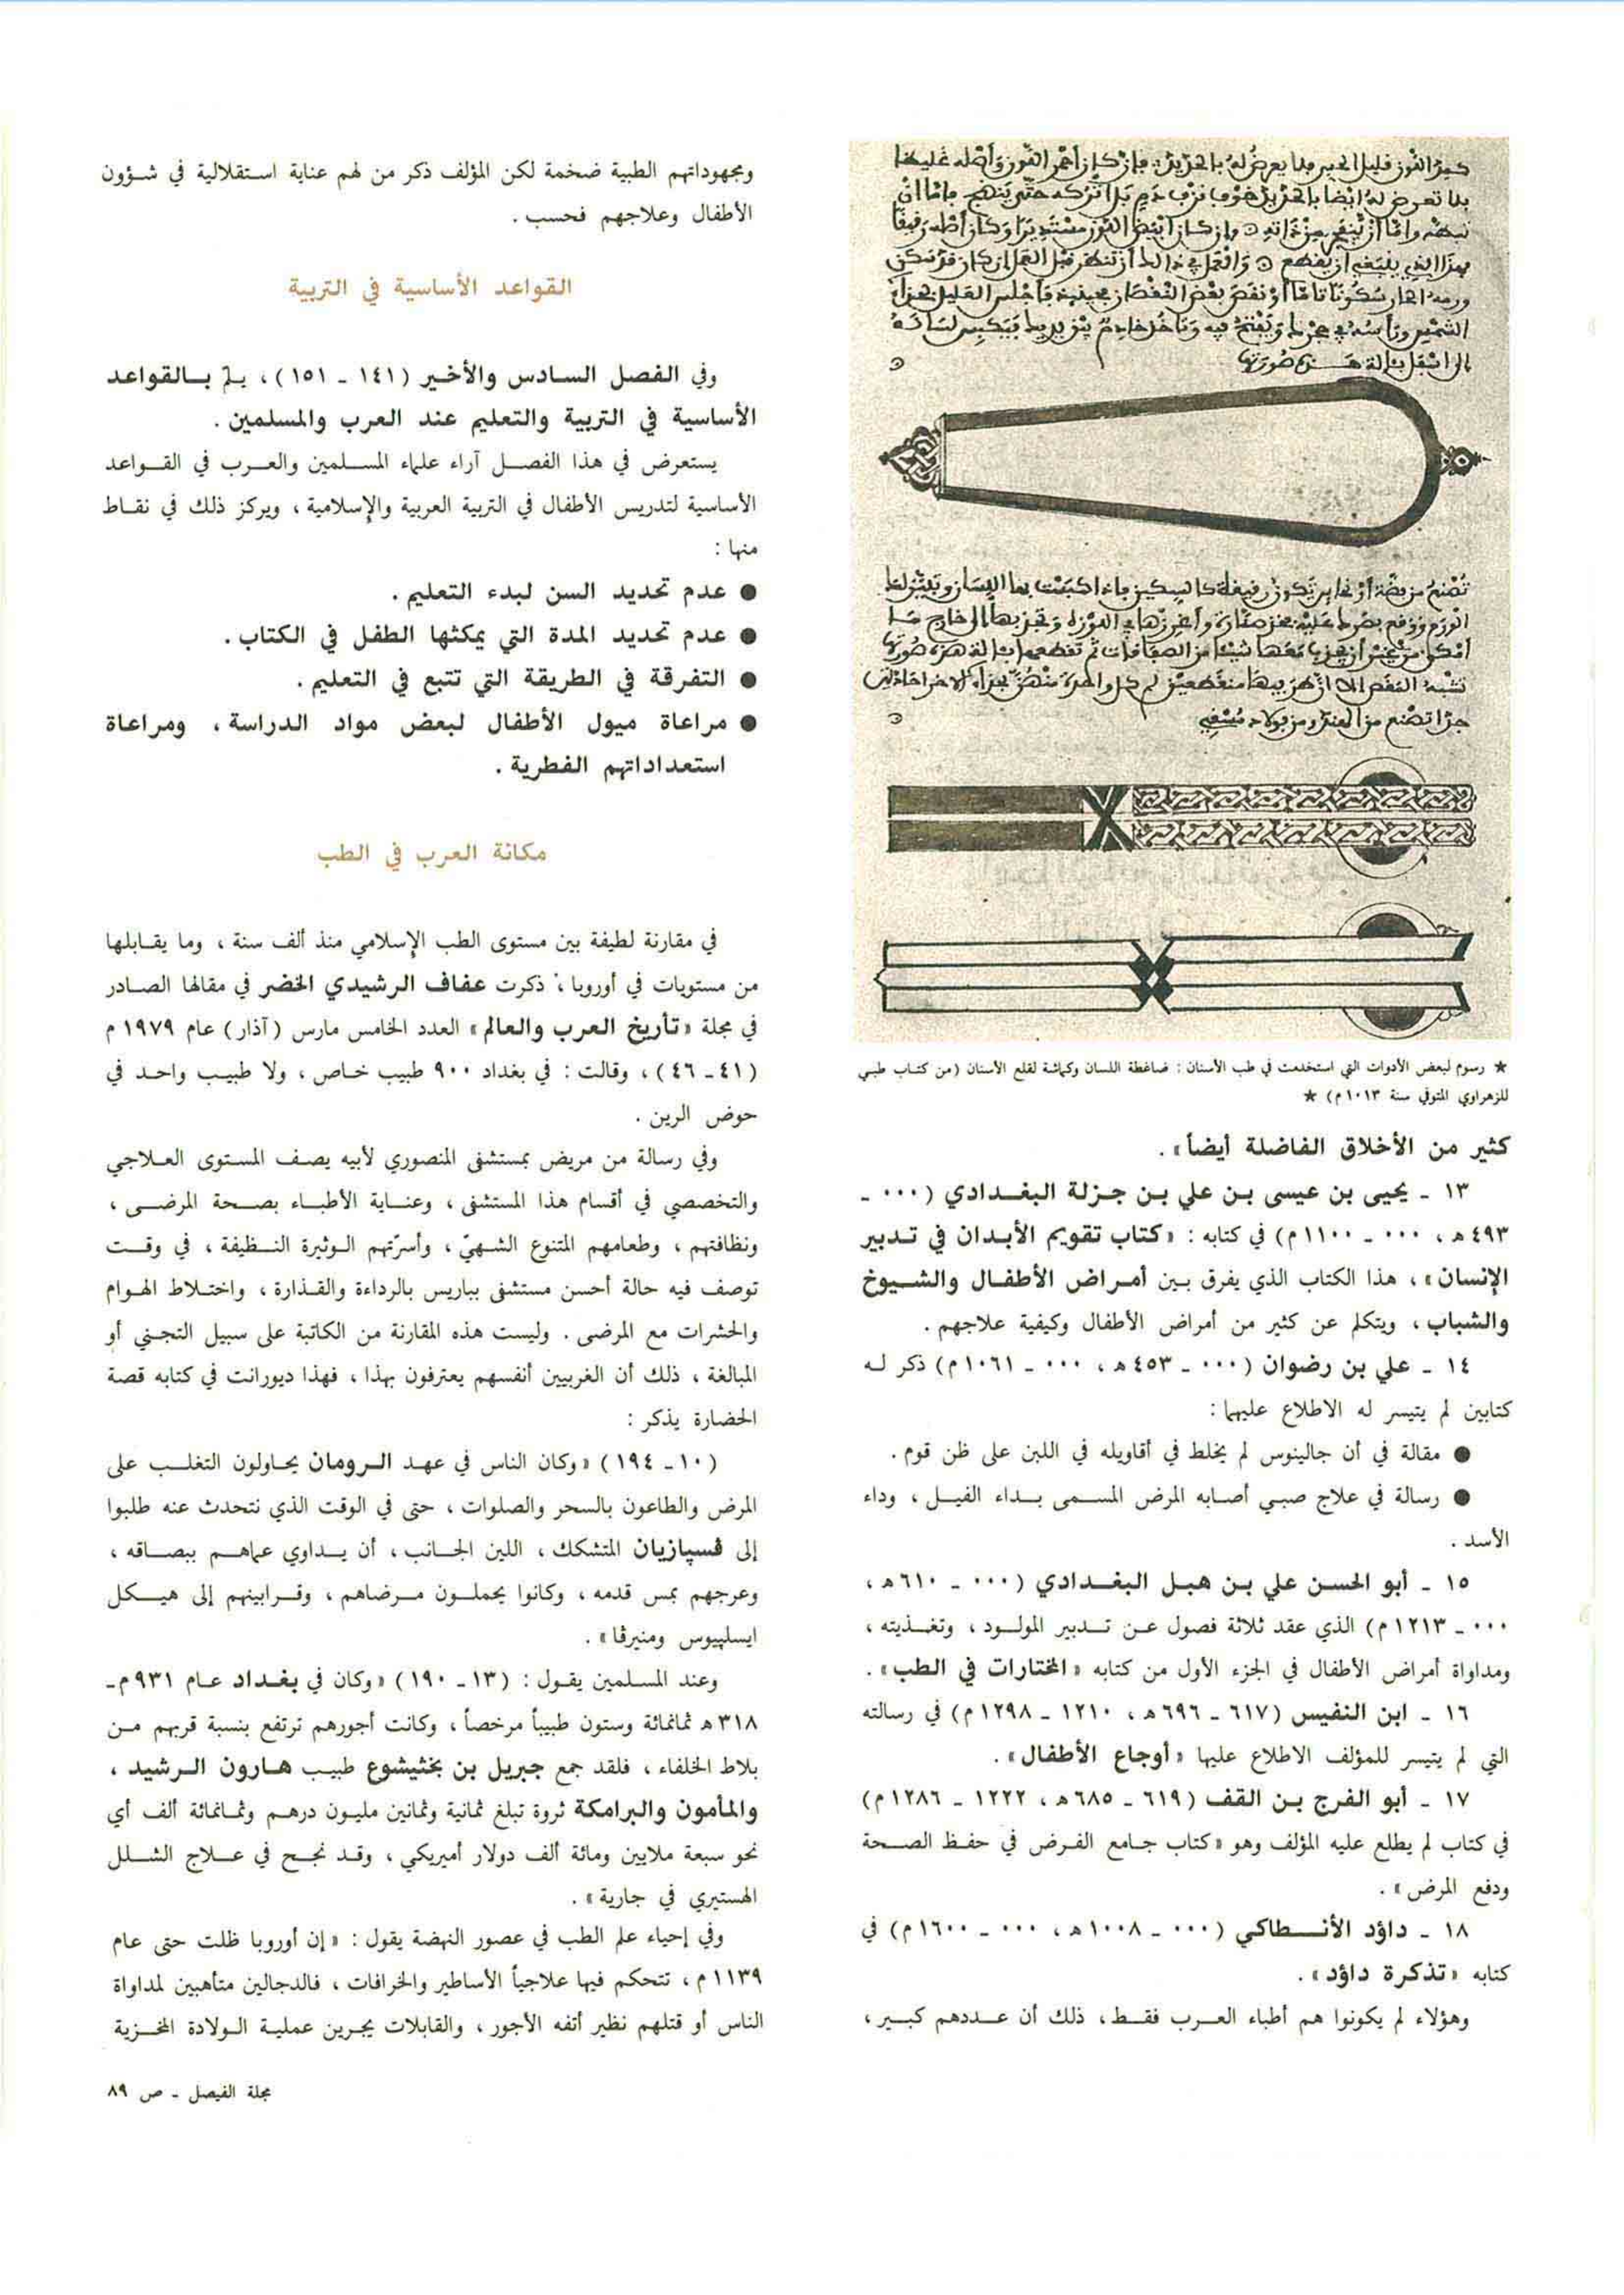 ★ رسوم لبعض الأدوات التي استخدمت في طب الأسنان : ضاغطة اللسان وكماشة لقلع الأسنان (من كتاب طبي
للزهراوي المتوفي سنة ١٠١٣ م) ★
كثير من الأخلاق الفاضلة أيضاً» .
١٣ ـ يحيى بن عيسى بن علي بن جزلة البغدادي (٠٠٠ ـ
٤٩٣ هـ ، ٠٠٠ ـ ١١٠٠ م) في كتابه : «كتاب تقويم الأبدان في تدبير
الإنسان» ، هذا الكتاب الذي يفرق بين أمراض الأطفال والشيوخ
والشباب ، ويتكلم عن كثير من أمراض الأطفال وكيفية علاجهم .
١٤ ـ علي بن رضوان (٠٠٠ ـ ٤٥٣ هـ ، ٠٠٠ ـ ١٠٦١ م) ذكر له
كتابين لم يتيسر له الاطلاع عليهما :
● مقالة في أن جالينوس لم يخلط في أقاويله في اللبن على ظن قوم .
● رسالة في علاج صبي أصابه المرض المسمى بداء الفيل ، وداء
الأسد .
١٥ ـ أبو الحسن علي بن هبل البغدادي (٠٠٠ ـ ٦١٠ هـ ،
٠٠٠ ـ ١٢١٣ م) الذي عقد ثلاثة فصول عن تدبير المولود ، وتغذيته ،
ومداواة أمراض الأطفال في الجزء الأول من كتابه «المختارات في الطب» .
١٦ ـ ابن النفيس (٦١٧ ـ ٦٩٦ هـ ، ١٢١٠ ـ ١٢٩٨ م) في رسالته
التي لم يتيسر للمؤلف الاطلاع عليها «أوجاع الأطفال» .
١٧ ـ أبو الفرج بن القف (٦١٩ ـ ٦٨٥ هـ ، ١٢٢٢ ـ ١٢٨٦ م)
في كتاب لم يطلع عليه المؤلف وهو «كتاب جامع الفرض في حفظ الصحة
ودفع المرض» .
١٨ ـ داؤد الأنطاكي (٠٠٠ ـ ١٠٠٨ هـ ، ٠٠٠ ـ ١٦٠٠ م) في
كتابه «تذكرة داؤد» .
وهؤلاء لم يكونوا هم أطباء العرب فقط ، ذلك أن عددهم كبير ،
ومجهوداتهم الطبية ضخمة لكن المؤلف ذكر من لهم عناية استقلالية في شؤون
الأطفال وعلاجهم فحسب .
القواعد الأساسية في التربية
وفي الفصل السادس والأخير (١٤١ ـ ١٥١) ، يلم بالقواعد
الأساسية في التربية والتعليم عند العرب والمسلمين .
يستعرض في هذا الفصل آراء علماء المسلمين والعرب في القواعد
الأساسية لتدريس الأطفال في التربية العربية والإسلامية ، ويركز ذلك في نقاط
منها :
● عدم تحديد السن لبدء التعليم .
● عدم تحديد المدة التي يمكثها الطفل في الكتاب .
● التفرقة في الطريقة التي تتبع في التعليم .
● مراعاة ميول الأطفال لبعض مواد الدراسة ، ومراعاة
استعداداتهم الفطرية .
مكانة العرب في الطب
في مقارنة لطيفة بين مستوى الطب الإسلامي منذ ألف سنة ، وما يقابلها
من مستويات في أوروبا ، ذكرت عفاف الرشيدي الخضر في مقالها الصادر
في مجلة «تأريخ العرب والعالم» العدد الخامس مارس (آذار) عام ١٩٧٩ م
(٤١ ـ ٤٦) ، وقالت : في بغداد ٩٠٠ طبيب خاص ، ولا طبيب واحد في
حوض الرين .
وفي رسالة من مريض بمستشفى المنصوري لأبيه يصف المستوى العلاجي
والتخصصي في أقسام هذا المستشفى ، وعناية الأطباء بصحة المرضى ،
ونظافتهم ، وطعامهم المتنوع الشهيّ ، وأسرّتهم الوثيرة النظيفة ، في وقت
توصف فيه حالة أحسن مستشفى بباريس بالرداءة والقذارة ، واختلاط الهوام
والحشرات مع المرضى . وليست هذه المقارنة من الكاتبة على سبيل التجني أو
المبالغة ، ذلك أن الغربيين أنفسهم يعترفون بهذا ، فهذا ديورانت في كتابه قصة
الحضارة يذكر :
(١٠ ـ ١٩٤) «وكان الناس في عهد الرومان يحاولون التغلب على
المرض والطاعون بالسحر والصلوات ، حتى في الوقت الذي نتحدث عنه طلبوا
إلى ڤسپازيان المتشكك ، اللين الجانب ، أن يداوي عماهم ببصاقه ،
وعرجهم بمس قدمه ، وكانوا يحملون مرضاهم ، وقرابينهم إلى هيكل
ايسلپيوس ومنيرڤا» .
وعند المسلمين يقول : (١٣ ـ ١٩٠) «وكان في بغداد عام ٩٣١ م ـ
٣١٨ هـ ثمانمائة وستون طبيباً مرخصاً ، وكانت أجورهم ترتفع بنسبة قربهم من
بلاط الخلفاء ، فلقد جمع جبريل بن بختيشوع طبيب هارون الرشيد ،
والمأمون والبرامكة ثروة تبلغ ثمانية وثمانين مليون درهم وثمانمائة ألف أي
نحو سبعة ملايين ومائة ألف دولار أميريكي ، وقد نجح في علاج الشلل
الهستيري في جارية» .
وفي إحياء علم الطب في عصور النهضة يقول : «إن أوروبا ظلت حتى عام
١١٣٩ م ، تتحكم فيها علاجياً الأساطير والخرافات ، فالدجالين متأهبين لمداواة
الناس أو قتلهم نظير أتفه الأجور ، والقابلات يجرين عملية الولادة المخزية
مجلة الفيصل ـ ص ٨٩